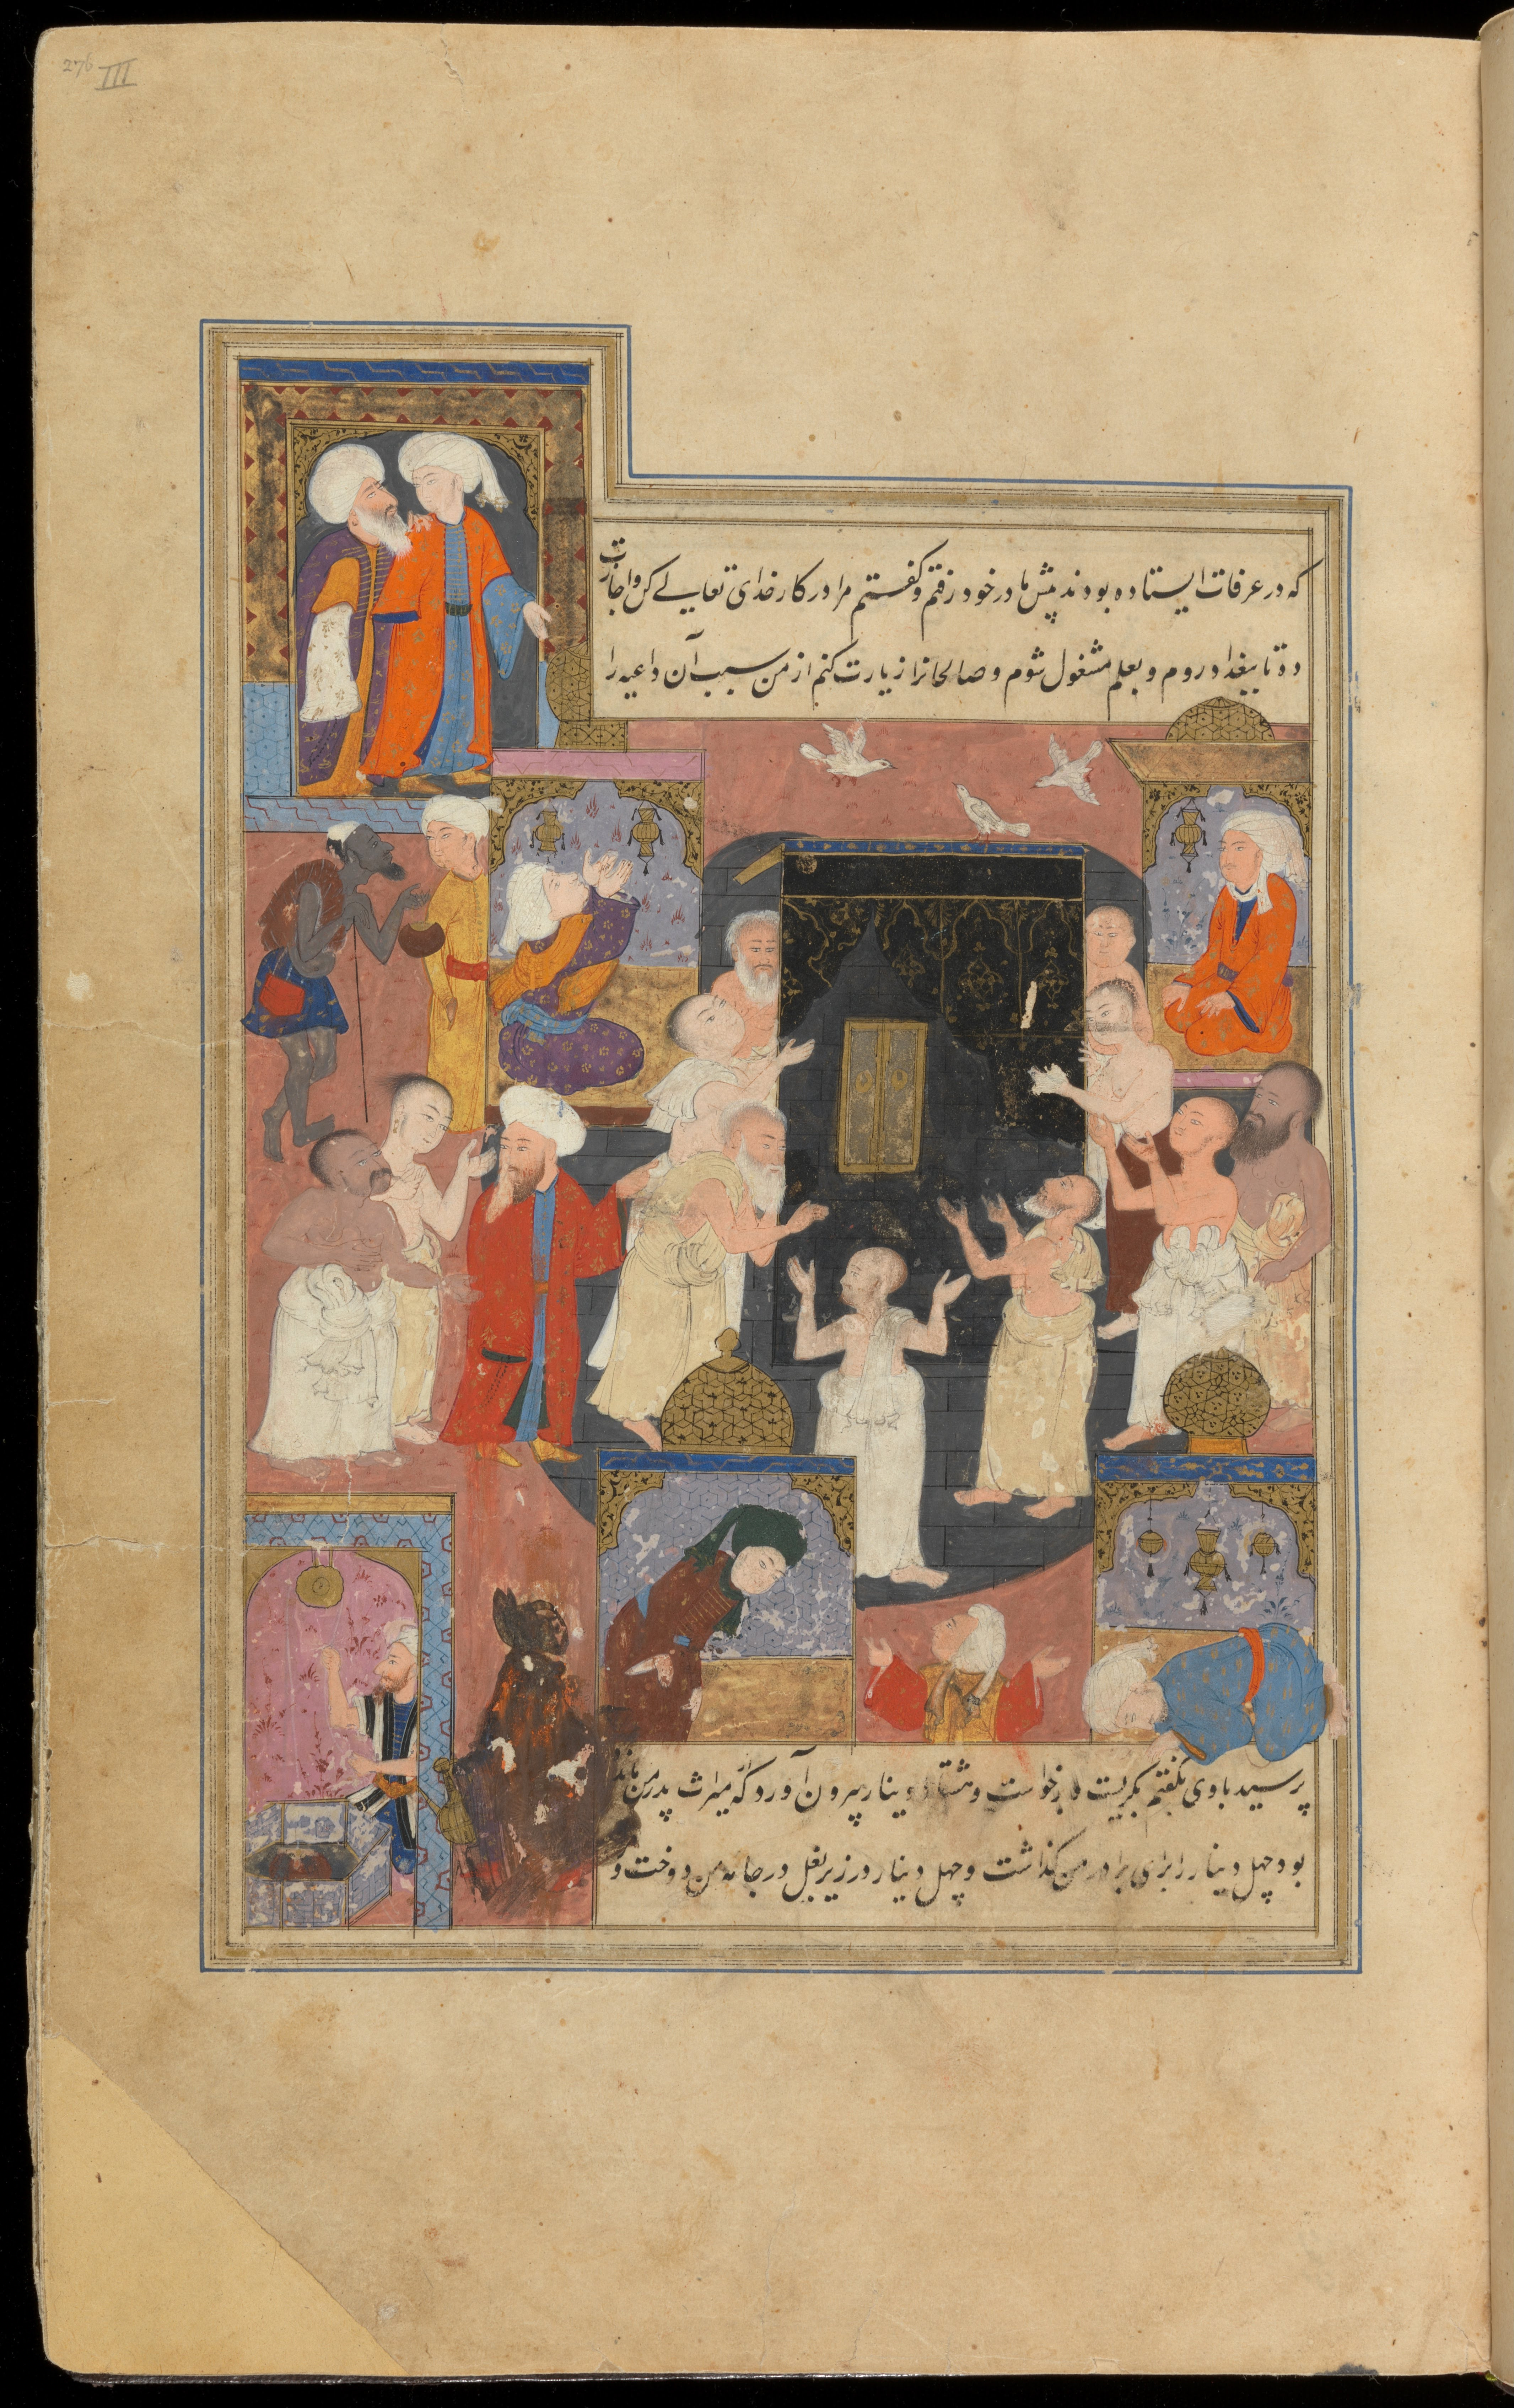 276 III
که در عرفات ایستاده بودند پیش مادر خود رفتم و گفتم مرا در کار خدای تعالی کن و اجازت
ده تا ببغداد روم و بعلم مشغول شوم و صالحانرا زیارت کنم از من سبب آن داعیه را
پرسید باوی بگفتم بگریست و برخواست و هشتاد دینار بیرون آورد که از میراث پدر من مانده
بود چهل دینار را برای برادر من گذاشت و چهل دینار در زیر بغل در جامه من دوخت و